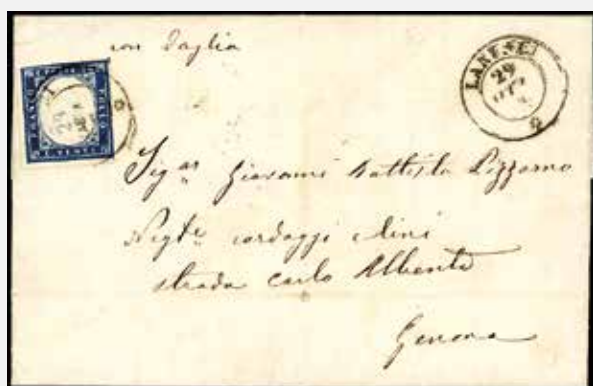 con Vaglia
FRANCO
BOLLO
C. VENTI
29
Sig.ar Giovanni Battista Pizzorno
Negte. cordaggi e lini
strada carlo Alberto
Genova